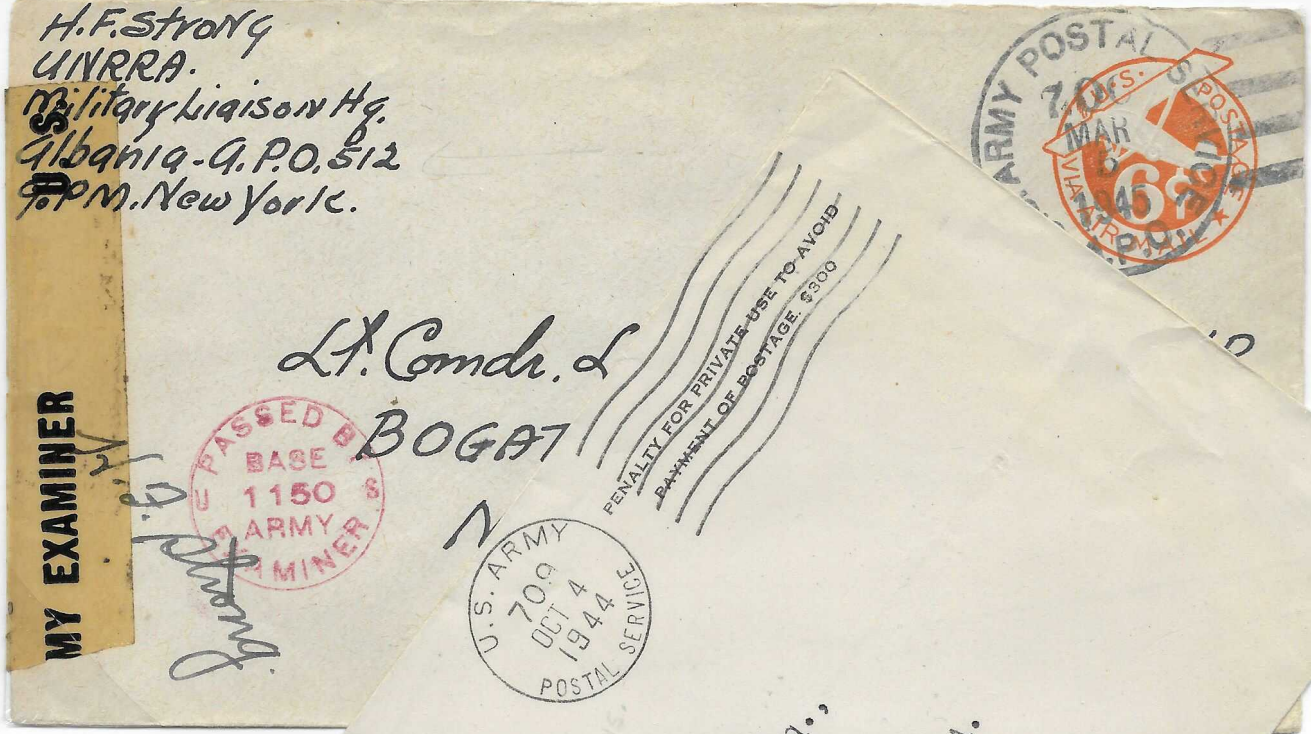 H.F. Strong
UNRRA.
Military Liaison Hq.
Albania - A.P.O. 512
℅ P.M. New York.
U.S.
MY EXAMINER
ARMY POSTAL SERVICE
MAR
1945
A.P.O.
U.S. POSTAGE
VIA AIR MAIL
6¢
Lt. Comdr. L
BOGAT
N
PASSED BY
BASE
1150
ARMY
EXAMINER
U S
PENALTY FOR PRIVATE USE TO AVOID
PAYMENT OF POSTAGE, $300
U.S. ARMY
709
OCT 4
1944
POSTAL SERVICE